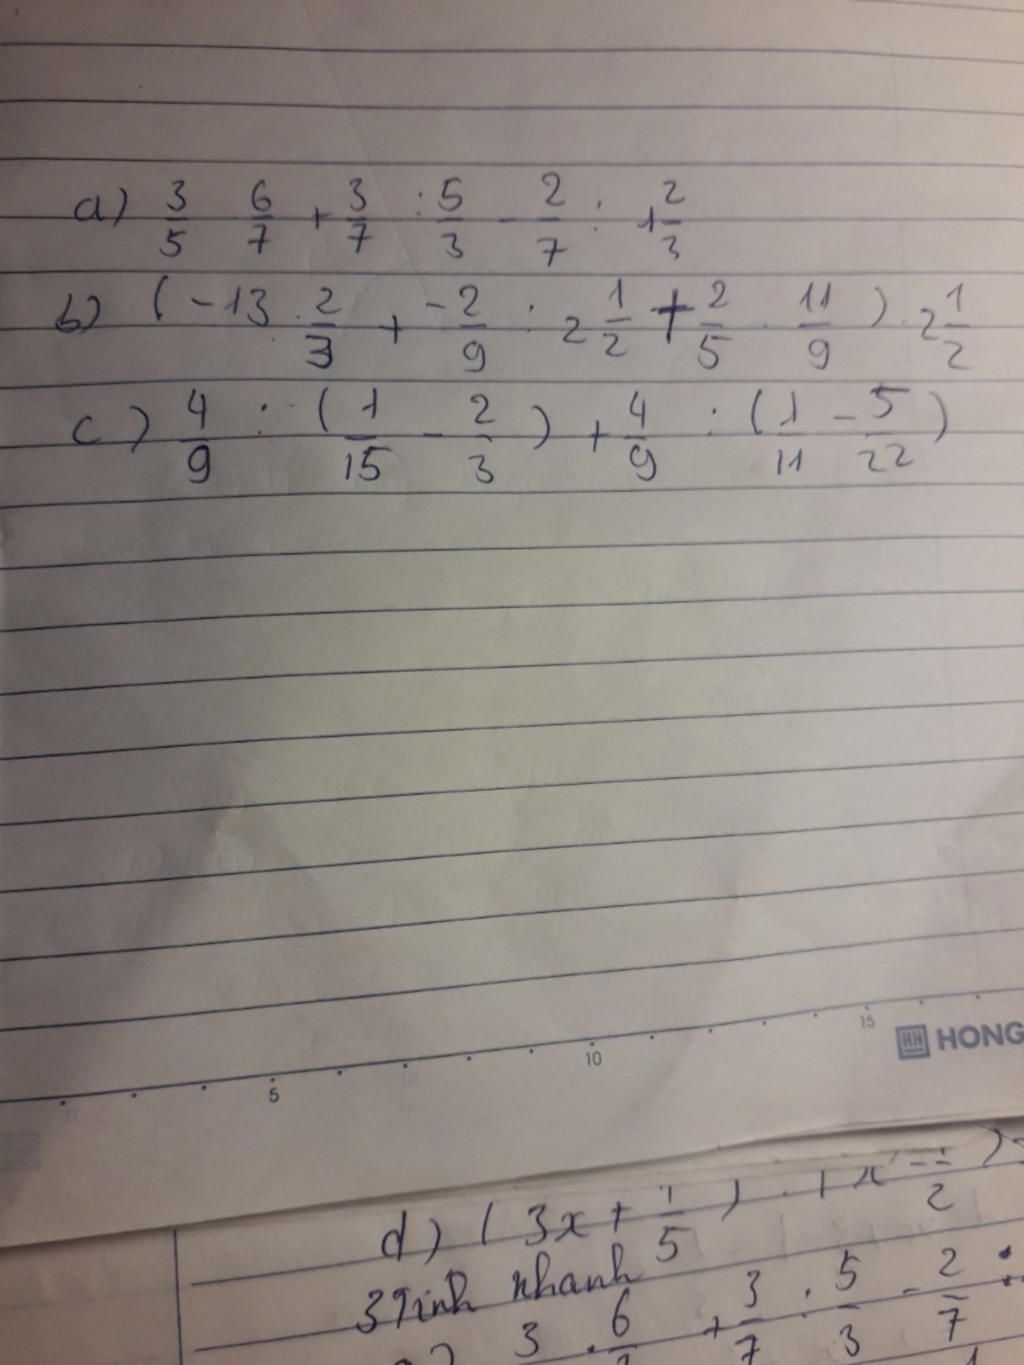 a) 3/5 6/7 + 3/7 : 5/3 - 2/7 : 1 2/3
b) (-13 . 2/3 + -2/9 : 2 1/2 + 2/5 . 11/9) . 2 1/2
c) 4/9 : (1/15 - 2/3) + 4/9 : (1/11 - 5/22)
5 10 15 HH HONG
d) (3x + 1/5)
3 Tính nhanh
3 . 6 + 3/7 : 5/3 - 2/7 :